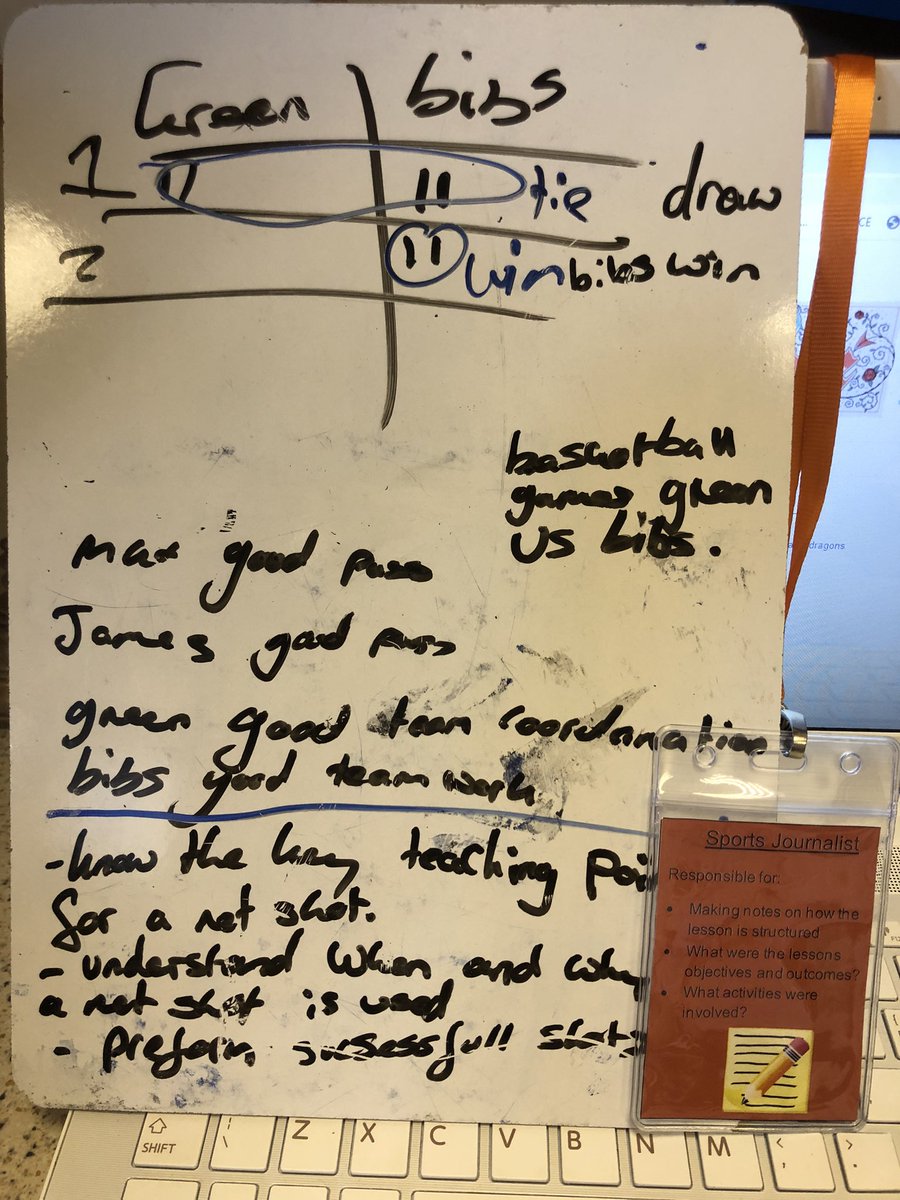 Green bibs
1 II tie draw
2 II win bibs win
basketball
games green
US bibs.
Max good pass
James good pass
green good team coordination
bibs good team work
- know the key teaching poi
for a net shot.
- understand when and why
a net shot is used
- preform susessfull shots
Sports Journalist
Responsible for:
• Making notes on how the
lesson is structured
• What were the lessons
objectives and outcomes?
• What activities were
involved?
CE
dragons
SHIFT
| \
Z
X
C
V
B
N
M
< ,
> .